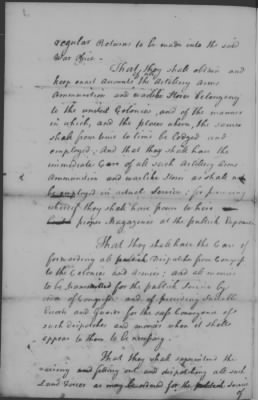 regular Returns to be made into the said
War Office.
That they shall obtain and
keep exact Accounts of all the Artillery Arms
Ammunition and warlike Stores belonging
to the united Colonies, and of the manner
in which, and the places where, the same
shall from time to time be lodged and
employed; And that they shall have the
immediate Care of all such Artillery Arms
Ammunition and warlike Stores as shall not
be employed in actual Service; for preserving
whereof they shall have power to hire
proper Magazines at the publick Expence
That they shall have the Care of
forwarding all Dispatches from Congress
to the Colonies and Armies; and all monies
to be transmitted for the publick Service by
order of Congress and of providing suitable
Escorts and Guards for the safe Conveyance of
such dispatches and monies when it shall
appear to them to be necessary.
That they shall superintend the
raising fitting out and dispatching all such
Land Forces as may be ordered for the publick Service